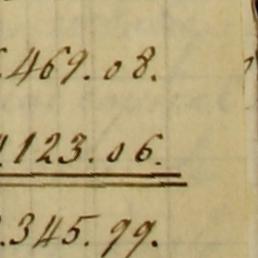 .469.08.
.123.06.
.345.99.